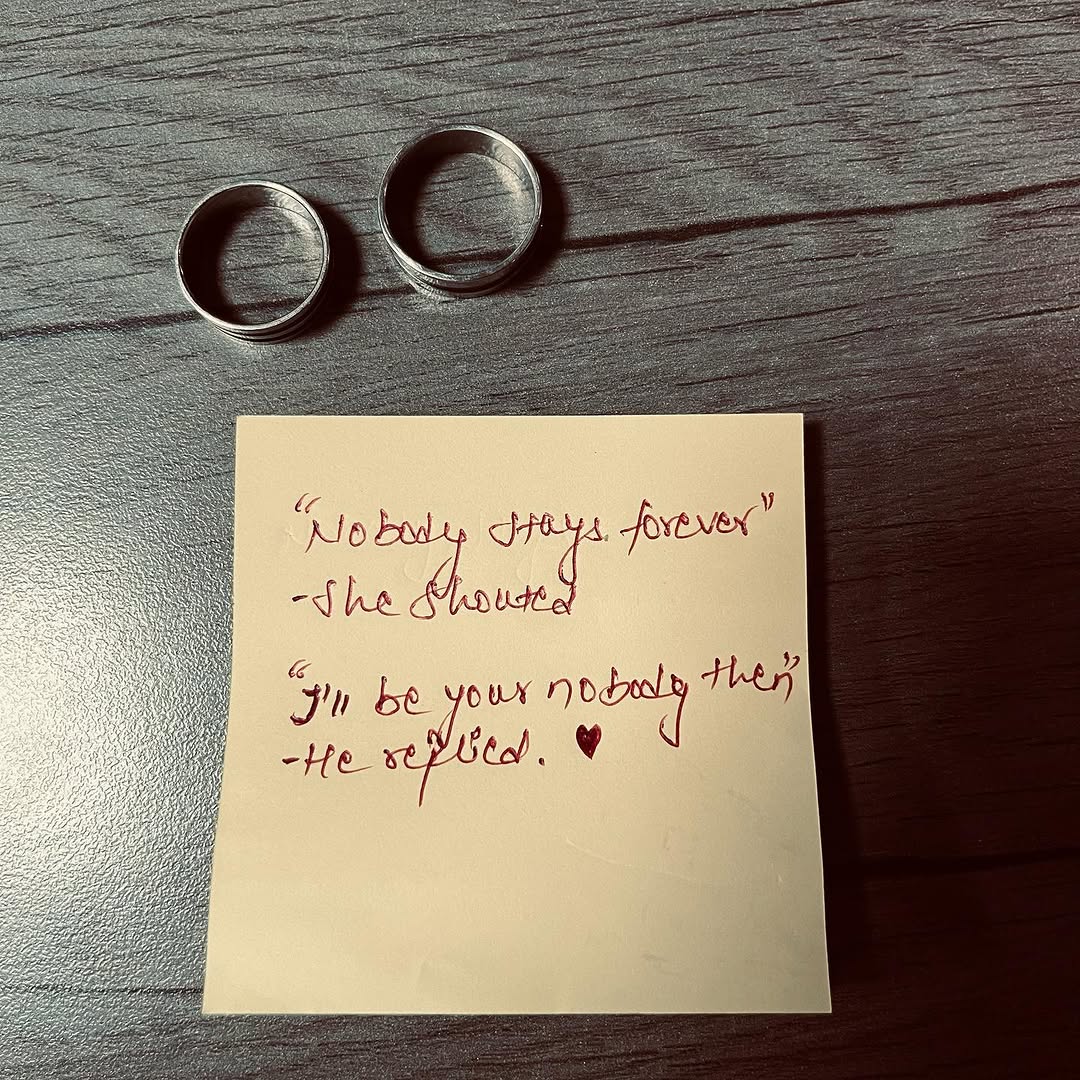 "Nobody stays forever"
-She shouted
"I'll be your nobody then"
-He replied. ♥